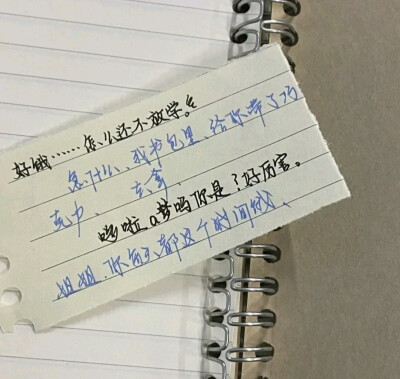 好饿……怎么还不放学。
急什么、我书包里、给你带了巧
克力、去拿
哆啦a梦吗你是？好厉害。
姐姐、你每天都这个时间饿、